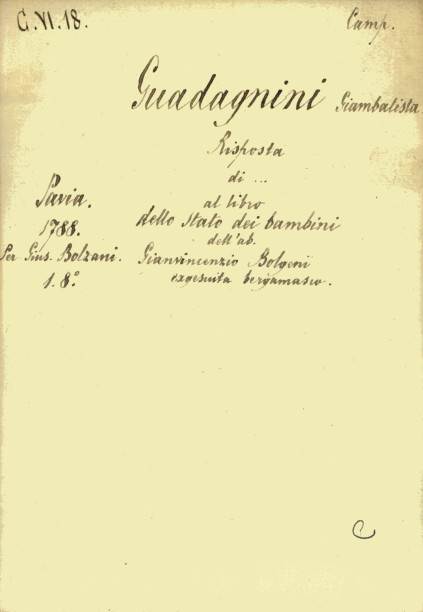 G.VI.18.
Camp.
Guadagnini Giambatista
Risposta
di ...
al libro
dello stato dei bambini
dell'ab.
Gianvincenzio Bolgeni
exgesuita bergamasco.
Pavia.
1788.
Per Gius. Bolzani.
1. 8.º
C